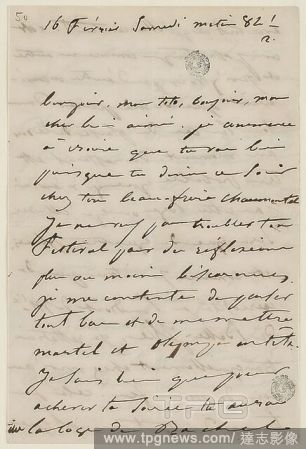 50
16 Février Samedi matin 8h 1/2
bonjour, mon toto, bonjour, mon
cher bien aimé, je commence
à croire que tu vas bien
puisque tu dines ce soir
chez ton beau-frère Chaumontel
Je ne veux pas troubler ton
festival par des réflexions
plus ou moins biscornues,
je me contente de parler
tout bas et de me mettre
martel et Olympio en tête.
Je sais bien que pour
achever la soirée tu auras
la loge de
TPG
www.tpgnews.com/達志影像